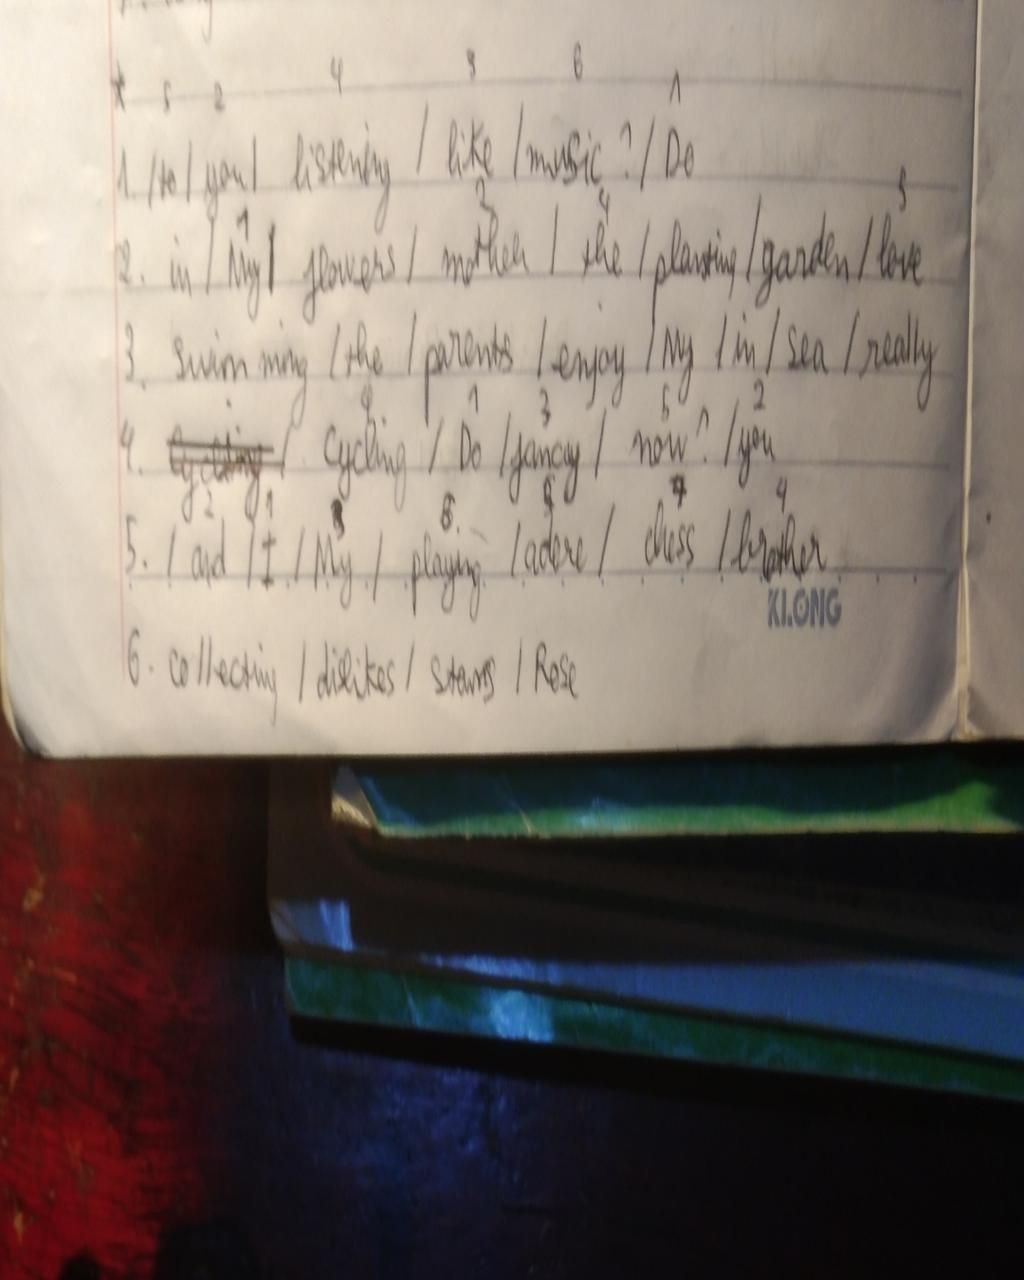 * 5 2 4 3 6 1
1. /to/ you/ listening / like / music? / Do
1 2 4 3
2. in / My / flowers / mother / the / planting / garden / love
3. swimming / the / parents / enjoy / My / in / sea / really
4 1 3 5 2
4. cycling / cycling / Do / fancy / now? / you
2 1 3 6 5 7 4
5. / and / I / My / playing / adore / chess / brother
KLONG
6. collecting / dislikes / stams / Rose